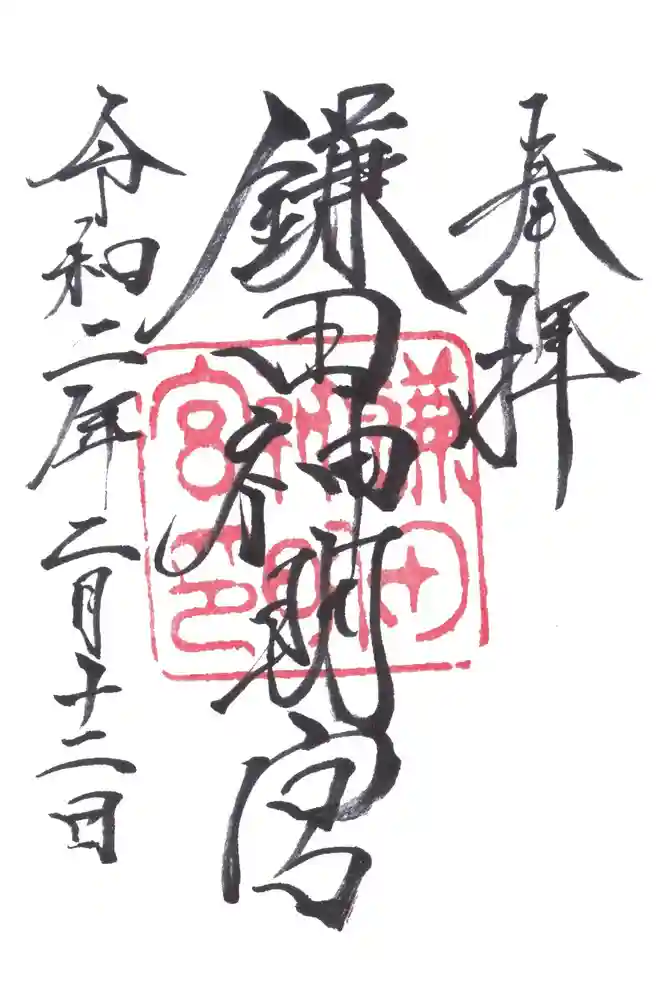 奉拝
鎌田神明宮
令和二年二月十二日
鎌田
神明
宮印